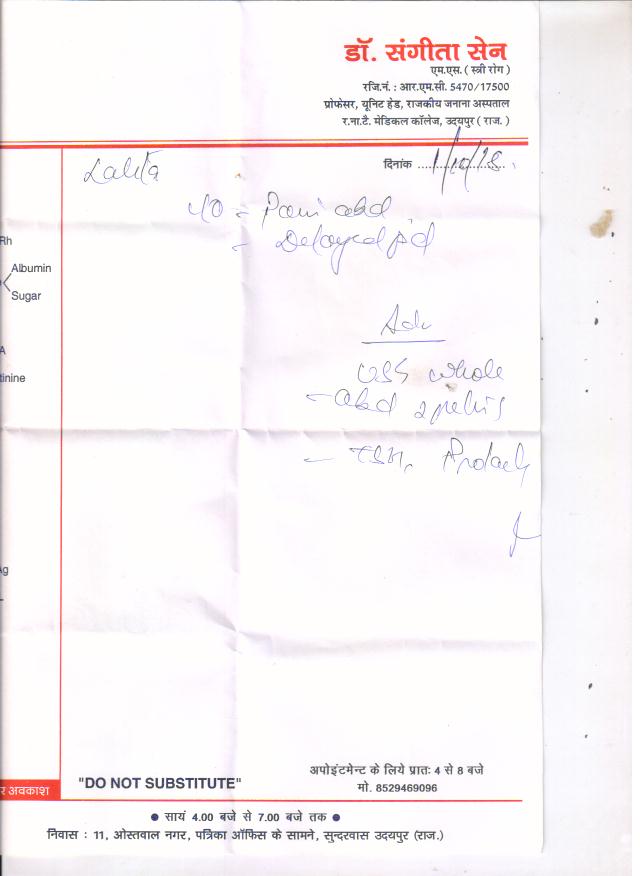 डॉ. संगीता सेन
एम.एस. ( स्त्री रोग )
रजि.नं. : आर.एम.सी. 5470/17500
प्रोफेसर, यूनिट हेड, राजकीय जनाना अस्पताल
र.ना.टै. मेडिकल कॉलेज, उदयपुर ( राज. )
दिनांक 1/10/18
Lalita
c/o = Pain abd
= Delayed pd
Rh
Albumin
Sugar
A
tinine
Adv
USG whole
- abd & pelvis
- TSH,
"DO NOT SUBSTITUTE"
अपोइंटमेन्ट के लिये प्रातः 4 से 8 बजे
मो. 8529469096
र अवकाश
● सायं 4.00 बजे से 7.00 बजे तक ●
निवास : 11, ओस्तवाल नगर, पत्रिका ऑफिस के सामने, सुन्दरवास उदयपुर (राज.)